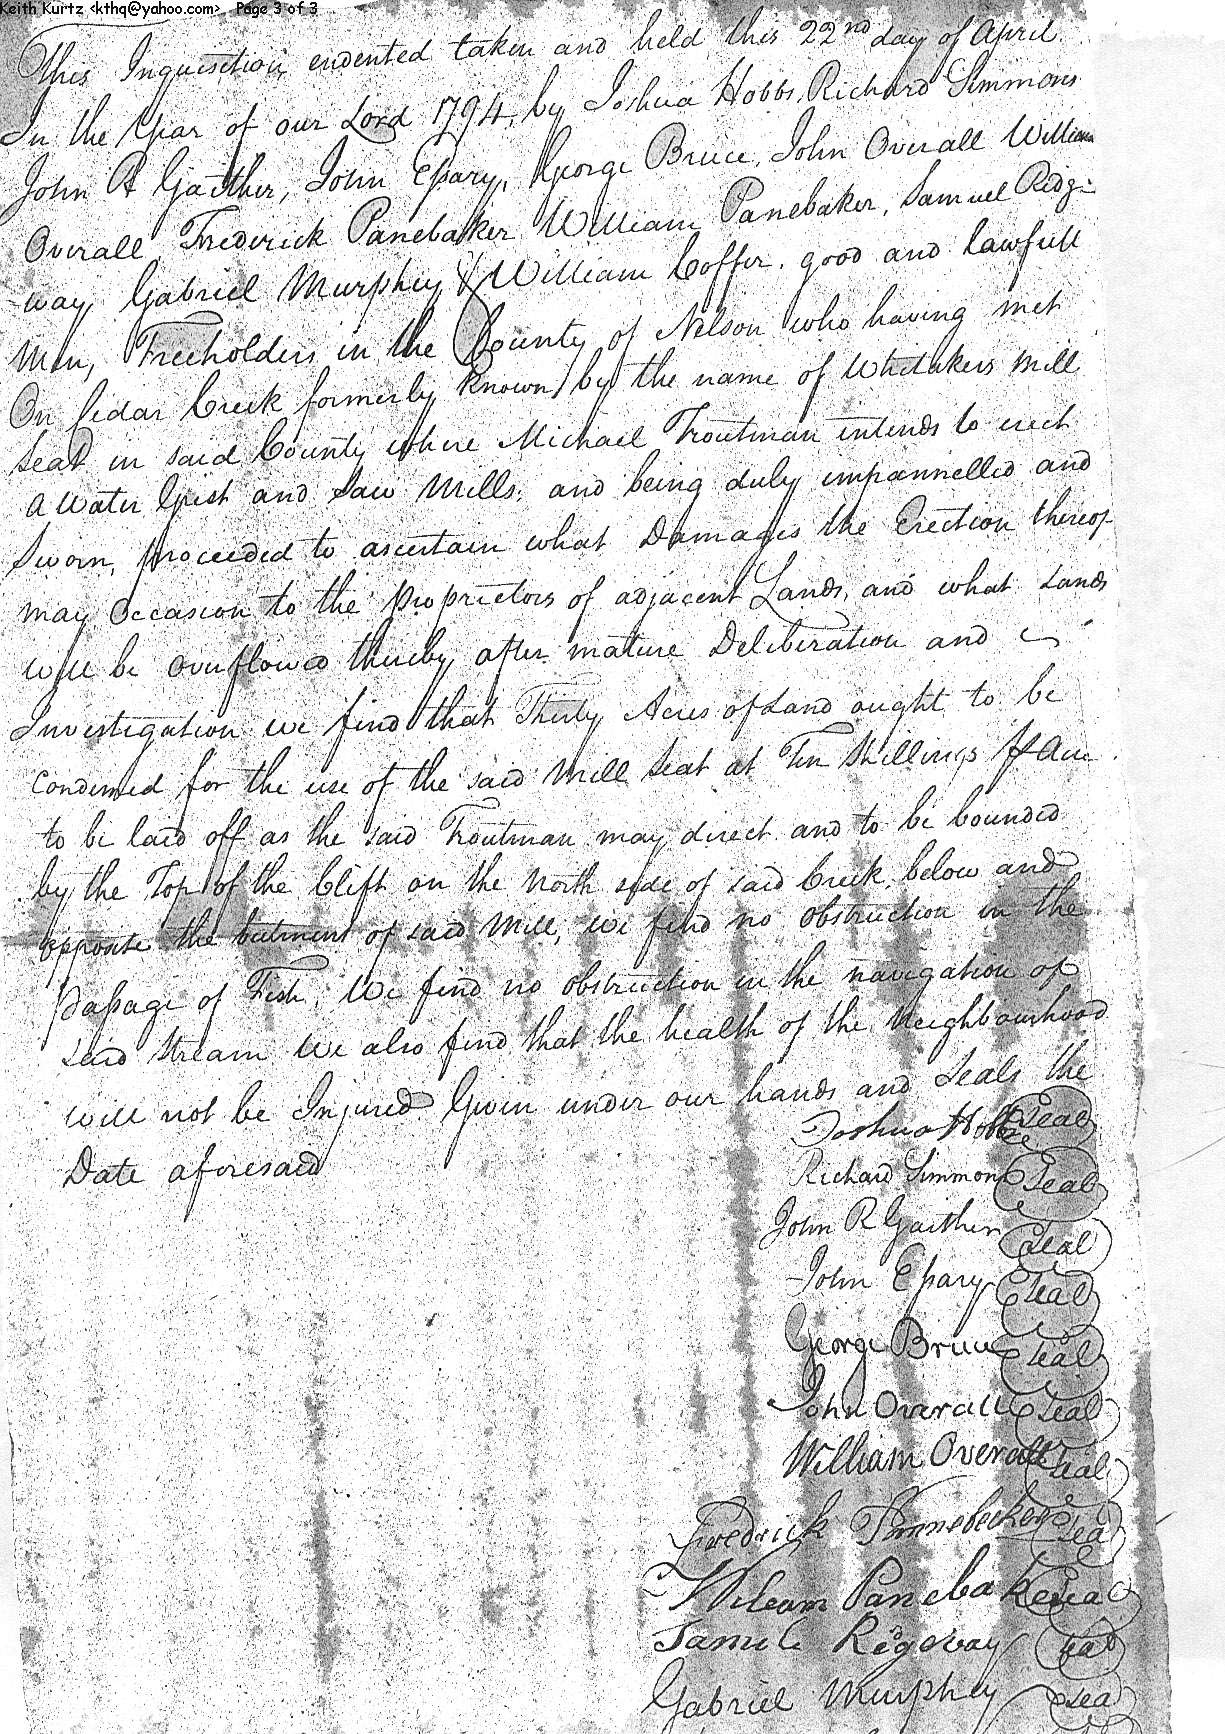 Keith Kurtz <kthq@yahoo.com>   Page 3 of 3
This Inquisition endented taken and held this 22nd day of April
In the Year of our Lord 1794, by Joshua Hobbs, Richard Simmons
John R Gaither, John Epary, George Bruce, John Overall William
Overall Frederick Panebaker William Panebaker, Samuel Ridg-
way Gabriel Murphey & William Coffer, good and lawfull
Men, Freeholders in the County of Nelson who having met
On Cedar Creek formerly known by the name of Whitakers Mill
Seat in said County where Michael Troutman intends to erect
a Water Grist and Saw Mills, and being duly impannelled and
Sworn, proceeded to ascertain what Damages the Erection thereof
may Occasion to the proprietors of adjacent Lands, and what Lands
will be overflowed thereby after mature Deliberation and
Investigation we find that Thirty Acres of Land ought to be
Condemned for the use of the said Mill Seat at Ten Shillings Acre
to be laid off as the said Troutman may direct and to be bounded
by the Top of the Clift on the North side of said Creek, below and
opposite the butment of said Mill, We find no obstruction in the
passage of Fish, We find no obstruction in the navigation of
said Stream We also find that the health of the Neighbourhood
will not be Injured Given under our hands and Seals the
Date aforesaid
Joshua Hobbs Seal
Richard Simmons Seal
John R Gaither Seal
John Epary Seal
George Bruce Seal
John Overall Seal
William Overall Seal
Fredrick Seal
William Panebaker Seal
Samule Rigdway Seal
Gabriel Murphey Seal